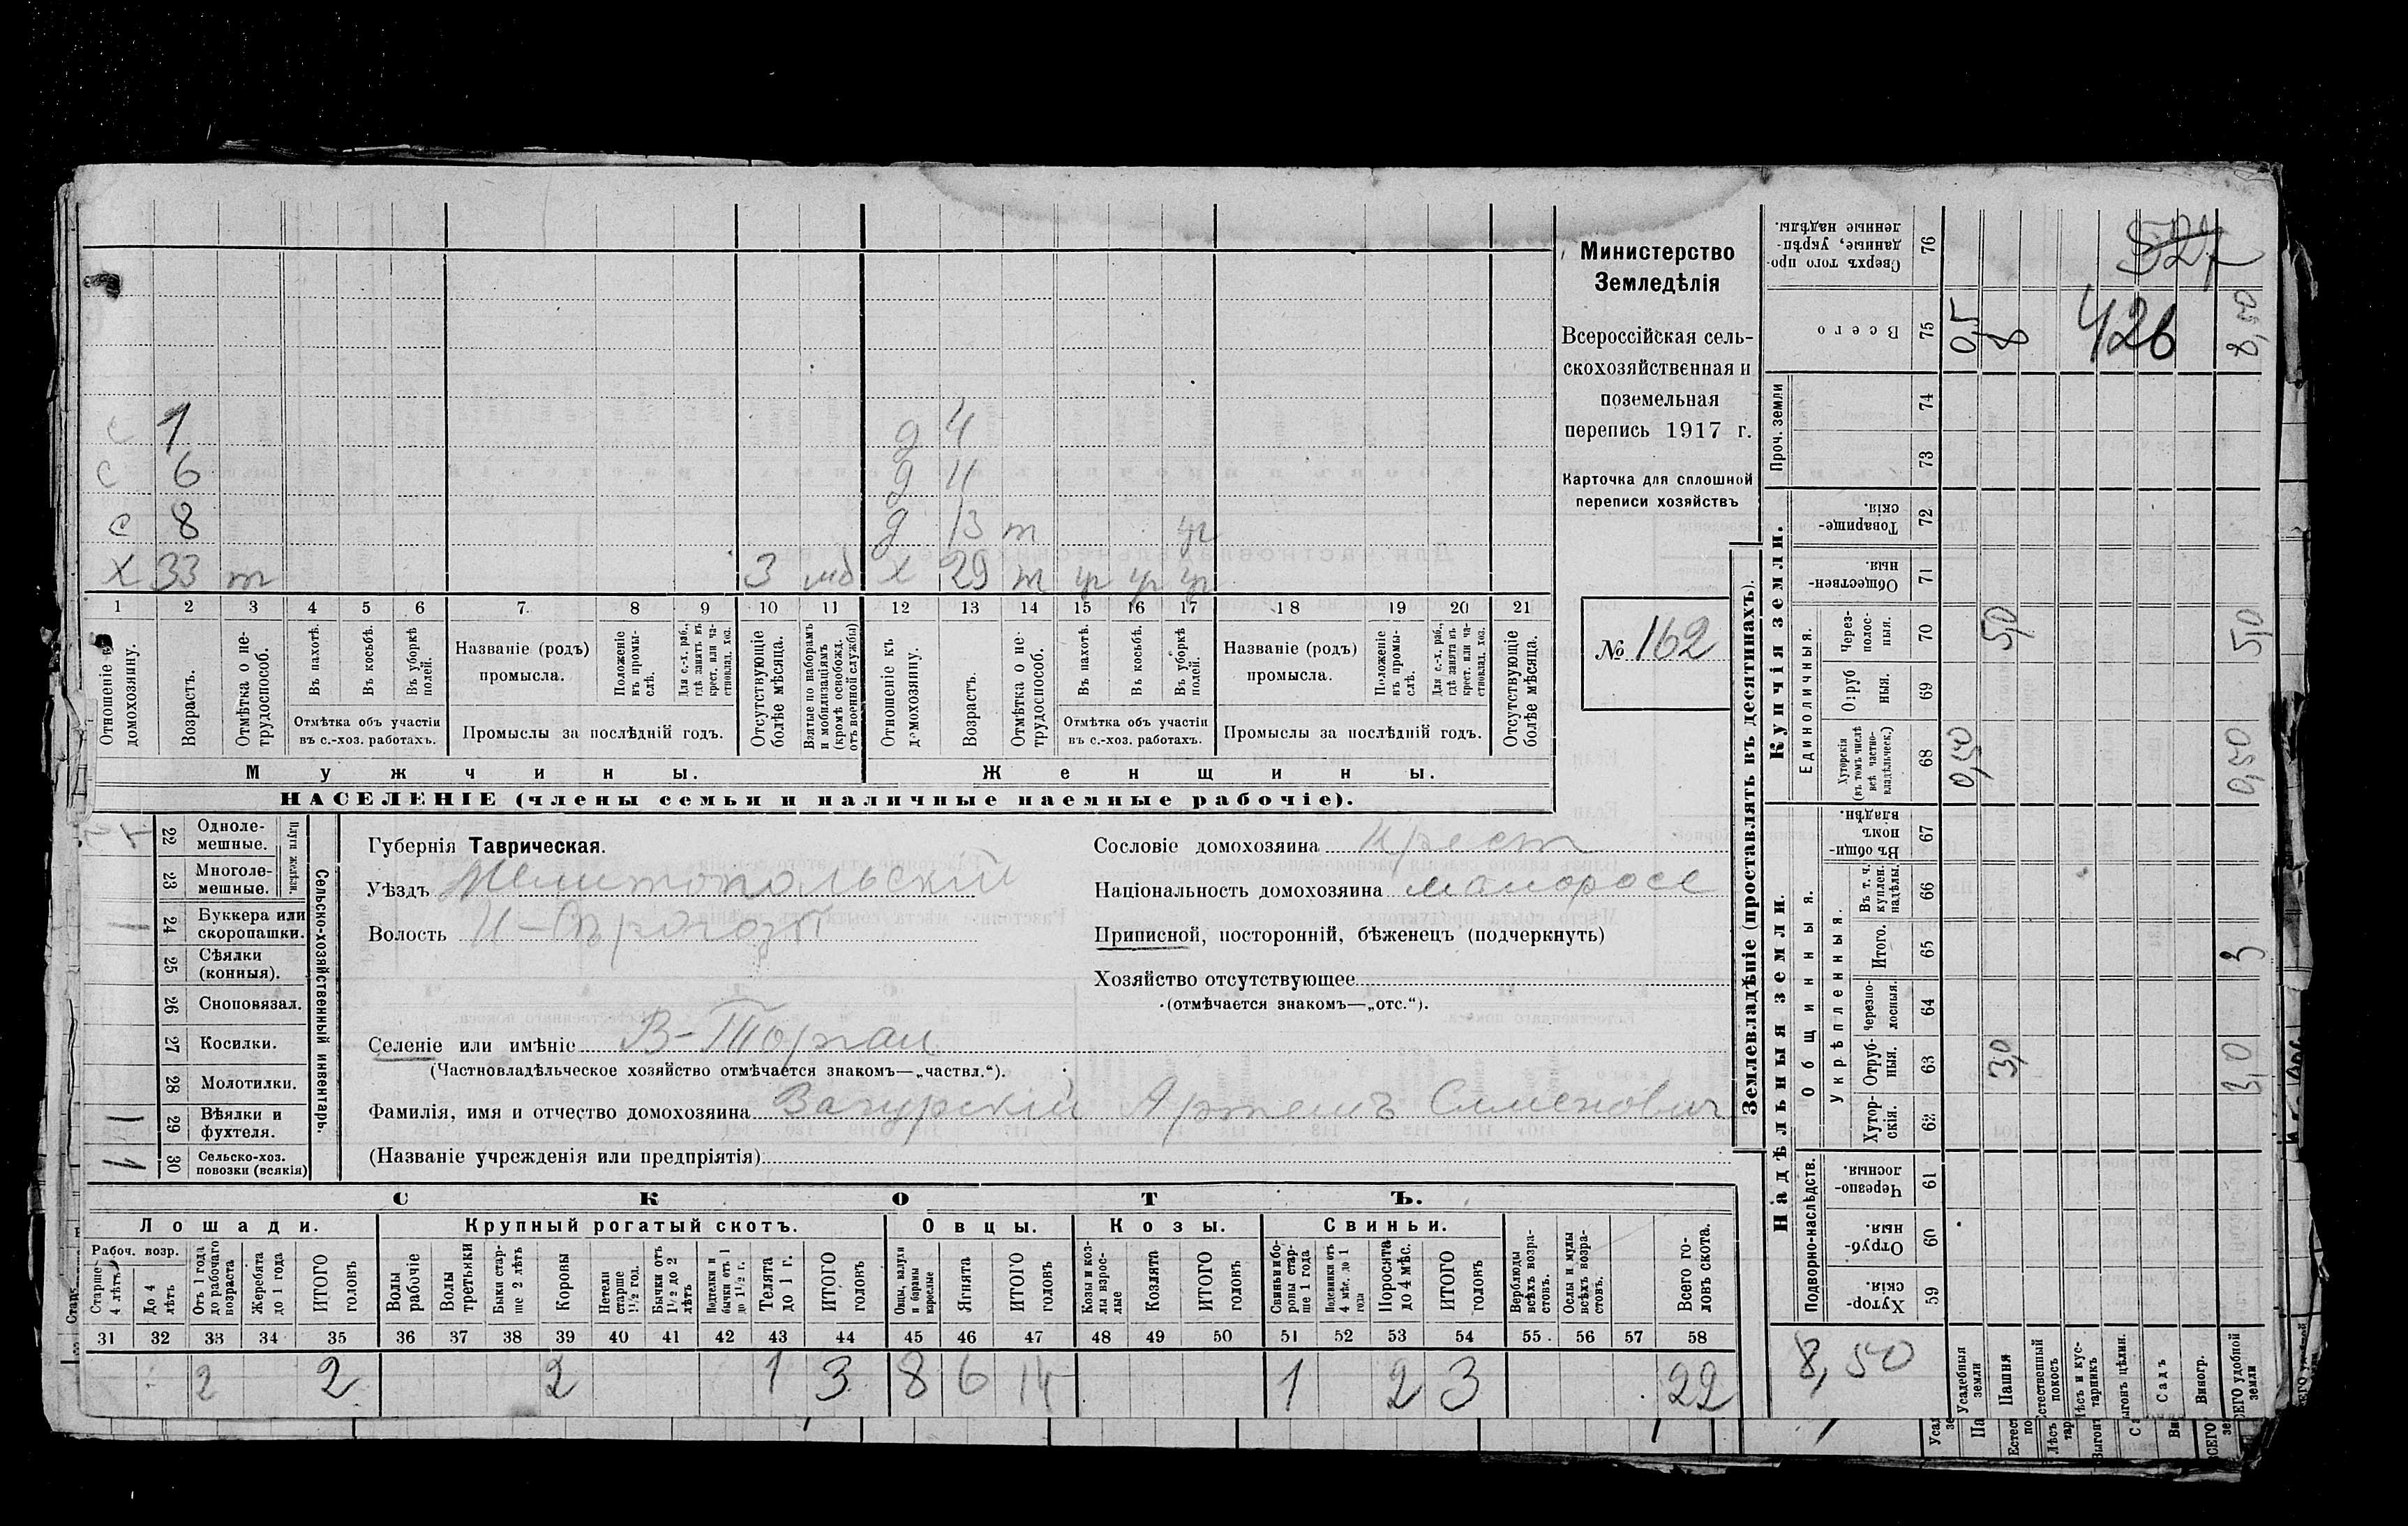 с 1 д 4
с 6 д 11
с 8 д 13 т уч
х 33 т 3 мб х 29 т уч уч уч
1 2 3 4 5 6 7. 8 9 10 11 12 13 14 15 16 17 18 19 20 21
Отношеніе къ домохозяину.
Возрастъ.
Отмѣтка о не-трудоспособ.
Въ пахотѣ.
Въ косьбѣ.
Въ уборкѣ полей.
Отмѣтка объ участіи въ с.-хоз. работахъ.
Названіе (родъ) промысла.
Положеніе въ промы-слѣ.
Для с.-х. раб., гдѣ занятъ въ крест. или ча-стновлад. хоз.
Промыслы за послѣдній годъ.
Отсутствующіе болѣе мѣсяца.
Взятые по наборамъ и мобилизаціямъ (кромѣ освобожд. отъ военной службы)
Отношеніе къ домохозяину.
Возрастъ.
Отмѣтка о не-трудоспособ.
Въ пахотѣ.
Въ косьбѣ.
Въ уборкѣ полей.
Отмѣтка объ участіи въ с.-хоз. работахъ.
Названіе (родъ) промысла.
Положеніе въ промы-слѣ.
Для с.-х. раб., гдѣ занята въ крест. или ча-стновлад. хоз.
Промыслы за послѣдній годъ.
Отсутствующіе болѣе мѣсяца.
Мужчины. Женщины.
НАСЕЛЕНІЕ (члены семьи и наличные наемные рабочіе).
Министерство
Земледѣлія
Всероссійская сель-
скохозяйственная и
поземельная
перепись 1917 г.
Карточка для сплошной
переписи хозяйствъ
№ 162
Сельско-хозяйственный инвентарь.
Плуги желѣзн.
22 Одноле-мешные.
23 Многоле-мешные.
1 24 Буккера или скоропашки.
25 Сѣялки (конныя).
26 Сноповязал.
27 Косилки.
28 Молотилки.
1 29 Вѣялки и фухтеля.
1 30 Сельско-хоз. повозки (всякія)
Губернія Таврическая.
Уѣздъ Мелитопольскій
Волость Н-Сѣрогозы
Селеніе или имѣніе В-Торгаи
(Частновладѣльческое хозяйство отмѣчается знакомъ—„частвл.“).
Фамилія, имя и отчество домохозяина Вагурскій Артемъ Семенович
(Названіе учрежденія или предпріятія)
Сословіе домохозяина Крест
Національность домохозяина малоросс
Приписной, посторонній, бѣженецъ (подчеркнуть)
Хозяйство отсутствующее
(отмѣчается знакомъ—„отс.“).
СКОТЪ.
Лошади. Крупный рогатый скотъ. Овцы. Козы. Свиньи.
Рабоч. возр.
Старше 4 лѣтъ
До 4 лѣтъ
Отъ 1 года до рабочаго возраста
Жеребята до 1 года
ИТОГО головъ
Волы рабочіе
Волы третьяки
Быки стар-ше 2 лѣтъ
Коровы
Нетели старше 1½ год.
Бычки отъ 1½ до 2 лѣтъ
Подтелки и бычки отъ 1 до 1½ г.
Телята до 1 г.
ИТОГО головъ
Овцы, валухи и бараны взрослые
Ягнята
ИТОГО головъ
Козы и коз-лы взрос-лые
Козлята
ИТОГО головъ
Свиньи и бо-ровы стар-ше 1 года
Подсвинки отъ 4 мѣс. до 1 года
Поросята до 4 мѣс.
ИТОГО головъ
Верблюды всѣхъ возра-стовъ.
Ослы и мулы всѣхъ возра-стовъ.
Всего го-ловъ скота.
31 32 33 34 35 36 37 38 39 40 41 42 43 44 45 46 47 48 49 50 51 52 53 54 55 56 57 58
2 2 2 1 3 8 6 14 1 2 3 22
Землевладѣніе (проставлять въ десятинахъ).
Купчія земли.
Надѣльныя земли.
Сверхъ того про-данные, укрѣп-ленные надѣлы. 76
Всего 75 0,5 8 426 8,50
Проч. земли 74 73
Товарище-скія. 72
Обществен-ныя. 71
Единоличныя.
Через-полос-ныя. 70 5,0 5,0
Отруб ныя. 69
Хуторскія (въ томъ числѣ всѣ частно-владѣльческ.) 68 0,50 0,50
Общинныя.
Въ общи-номъ владѣн. 67
Укрѣпленныя.
Въ т. ч. куплен. надѣлы. 66
Итого. 65 3
Черезпо-лосныя. 64
Отруб-ныя. 63 3,0 3,0
Хутор-скія. 62
Подворно-наслѣдств.
Черезпо-лосныя. 61
Отруб-ныя. 60
Хутор-скія. 59
8,50
Усадебныя земли
Пашня
Естественный покосъ
Лѣсъ и кус-тарникъ
Выгонъ цѣлин.
Садъ
Виногр.
ВСЕГО удобной земли